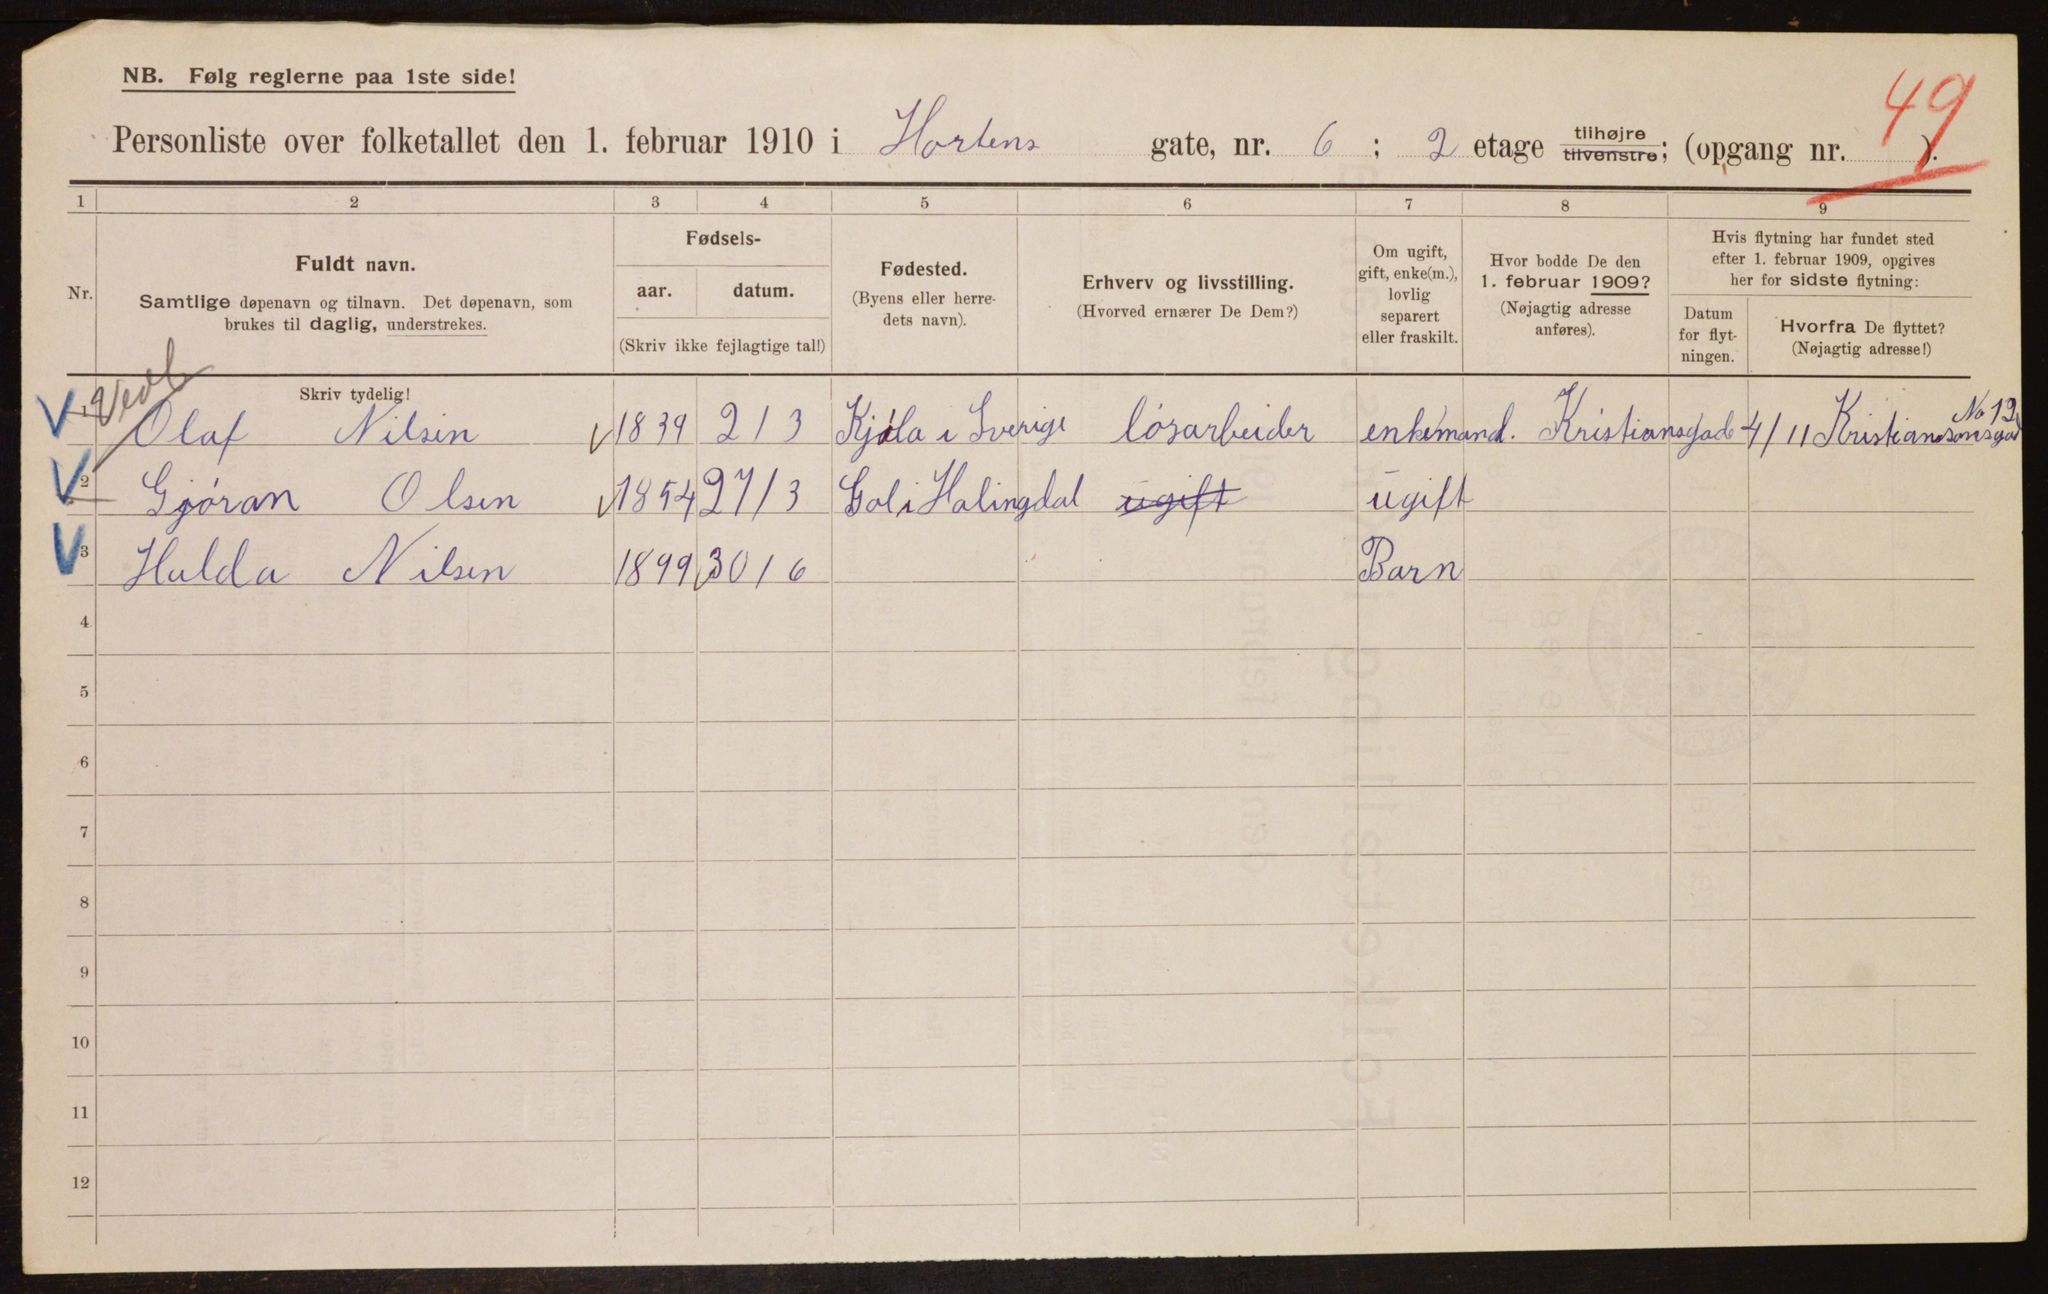 NB. Følg reglerne paa 1ste side!
49
Personliste over folketallet den 1. februar 1910 i Hortens gate, nr. 6; 2 etage tilhøjre tilvenstre; (opgang nr. ).
1 2 3 4 5 6 7 8 9
Nr.
Fuldt navn.
Samtlige døpenavn og tilnavn. Det døpenavn, som
brukes til daglig, understrekes.
Fødsels-
aar. datum.
(Skriv ikke fejlagtige tal!)
Fødested.
(Byens eller herre-
dets navn).
Erhverv og livsstilling.
(Hvorved ernærer De Dem?)
Om ugift,
gift, enke(m.),
lovlig
separert
eller fraskilt.
Hvor bodde De den
1. februar 1909?
(Nøjagtig adresse
anføres).
Hvis flytning har fundet sted
efter 1. februar 1909, opgives
her for sidste flytning:
Datum
for flyt-
ningen.
Hvorfra De flyttet?
(Nøjagtig adresse!)
Skriv tydelig!
1 Olaf Nilsen 1839 2/3 Kjøla i Sverige løsarbeider enkemand. Kristiansgad 4/11 No 12
2 Gjøran Olsen 1854 27/3 Gol i Halingdal ugift ugift
3 Hulda Nilsen 1899 30/6 Barn
4
5
6
7
8
9
10
11
12